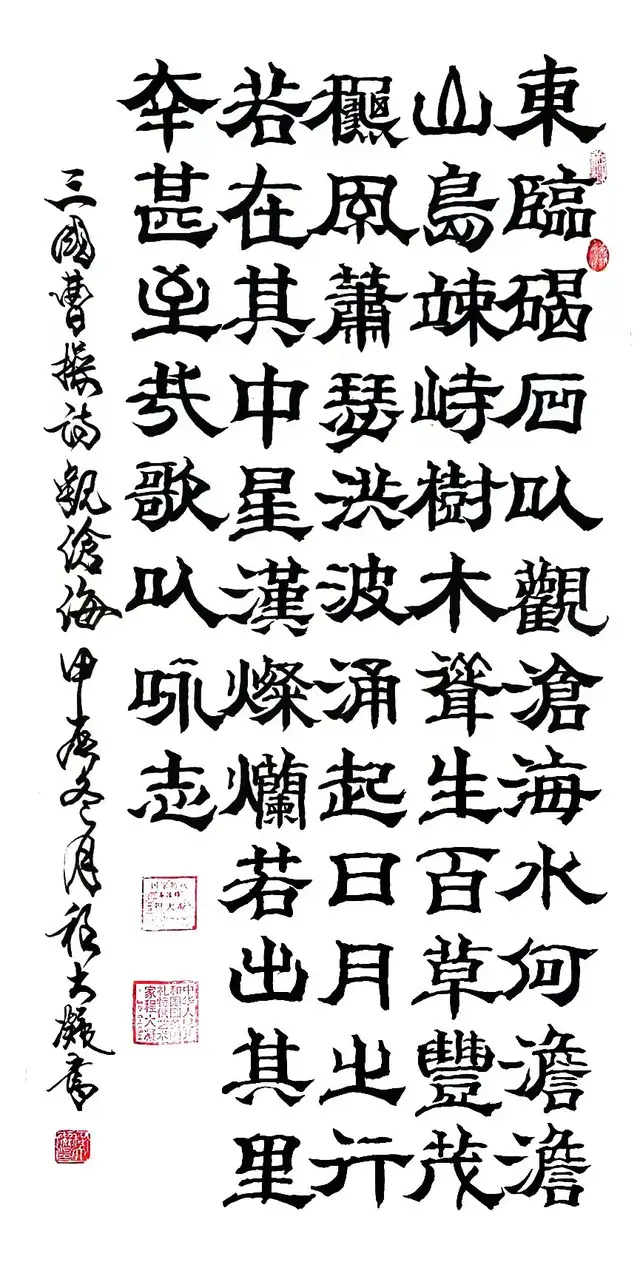 東臨碣石以觀滄海水何澹澹
山島竦峙樹木聳生百草豐茂
龝風蕭瑟洪波涌起日月之行
若在其中星漢燦爛若出其里
幸甚至哉歌以咏志
三國曹操詩觀滄海甲辰冬月程大凝書